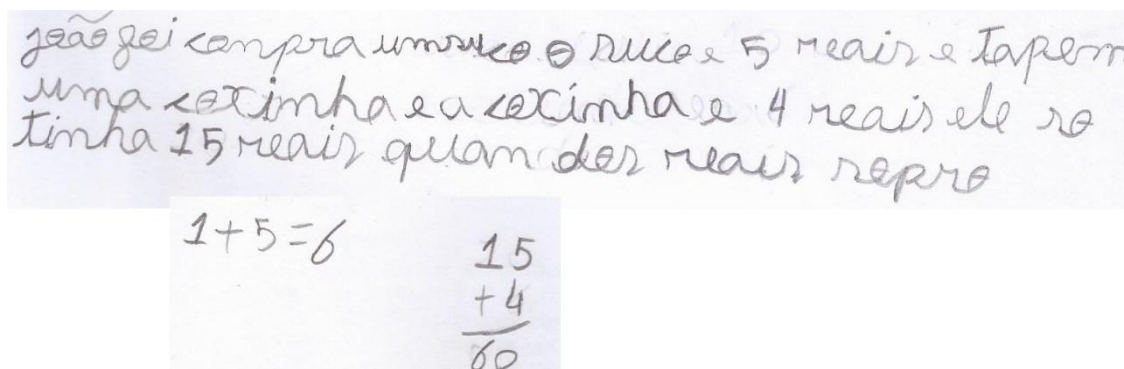 joão foi conpra um suco o suco e 5 reais e tapem
uma coximha e a coximha e 4 reais ele so
timha 15 reais quam dos reais sopro
1+5=6
15
+4
60